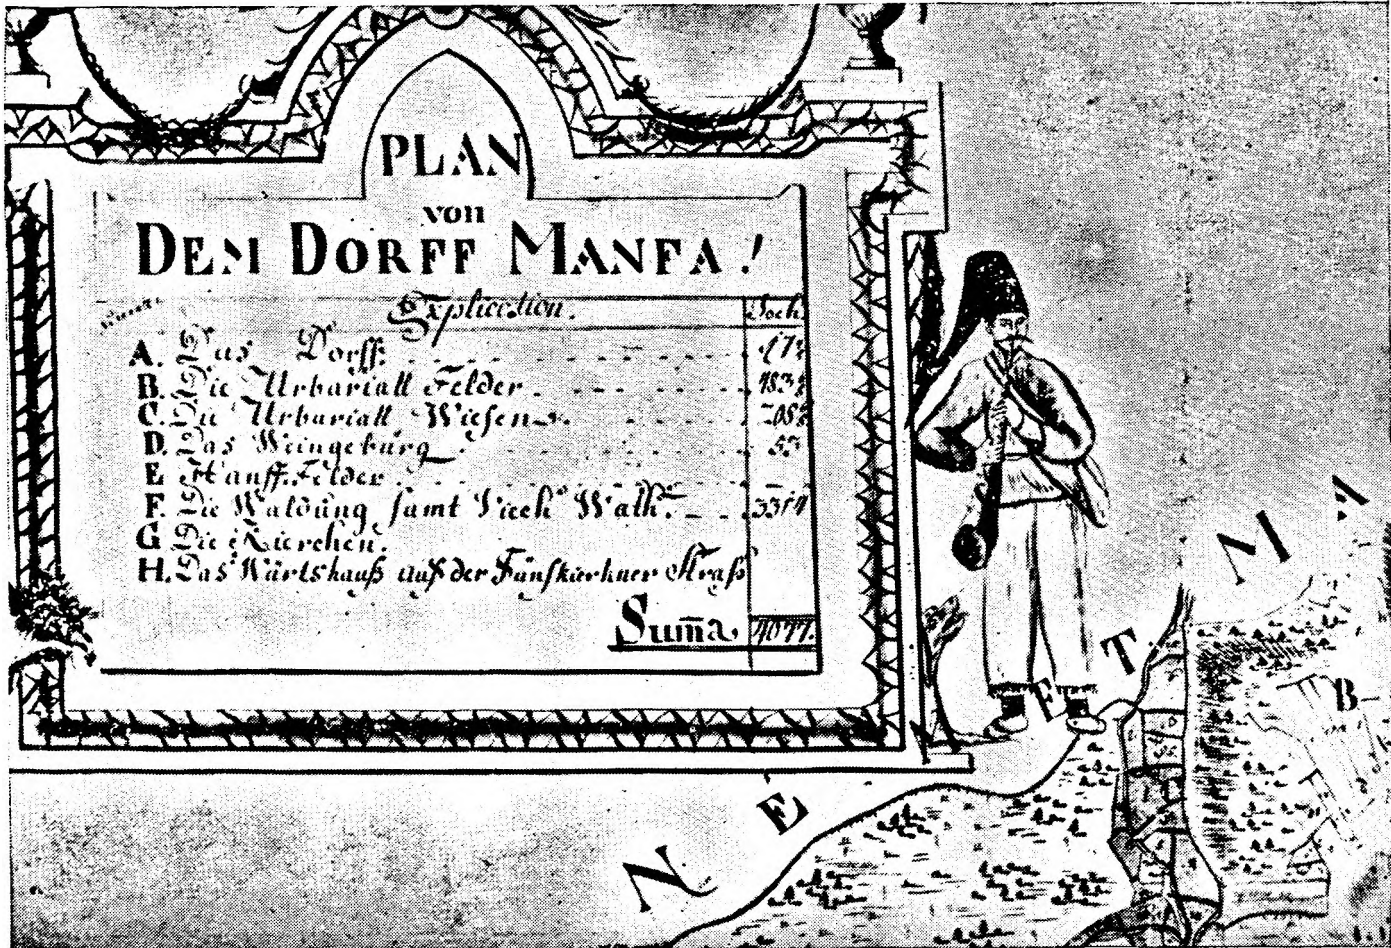 PLAN
von
DEM DORFF MANFA!
Explication. Joch
A. Das Dorff
B. Die Urbariall Felder
C. Die Urbariall Wiesen
D. Das Weingebürg
E Hanff Felder
F. Die Waldung samt Viech Waÿth.
G. Die Kierchen.
H. Das Würtshauß auf der Fünfkürchner Straß
Suma 4077.
N E E T M A
B